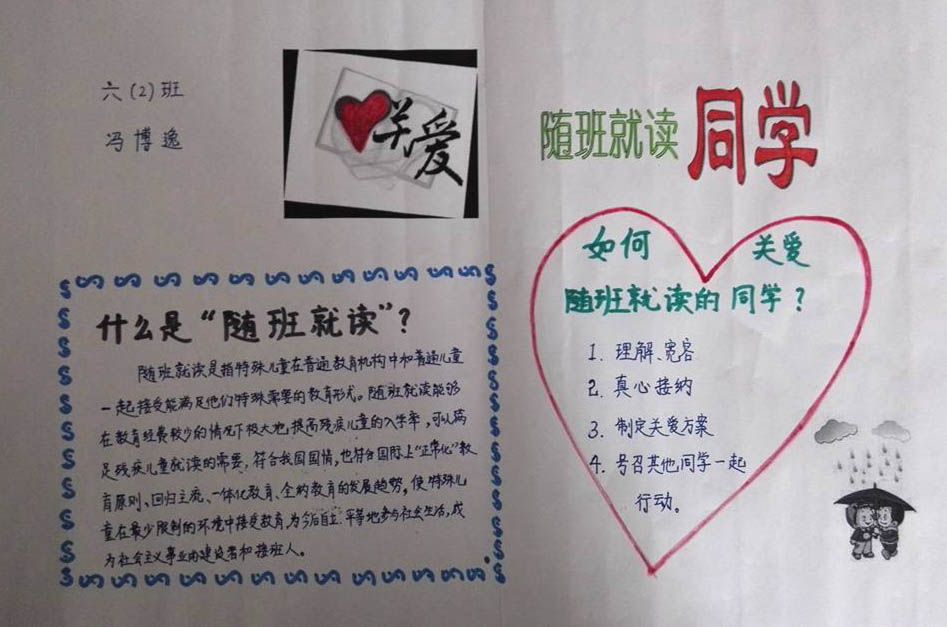 六(2)班
冯博逸
关爱
随班就读 同学
什么是“随班就读”?
随班就读是指特殊儿童在普通教育机构中和普通儿童
一起接受能满足他们特殊需要的教育形式。随班就读能够
在教育经费较少的情况下极大地提高残疾儿童的入学率,可以满
足残疾儿童就读的需要,符合我国国情,也符合国际上“正常化”教
育原则、回归主流、一体化教育、全纳教育的发展趋势,使特殊儿
童在最少限制的环境中接受教育,为今后自立、平等地参与社会生活,成
为社会主义事业的建设者和接班人。
如何 关爱
随班就读的同学?
1. 理解、宽容
2. 真心接纳
3. 制定关爱方案
4. 号召其他同学一起
行动。